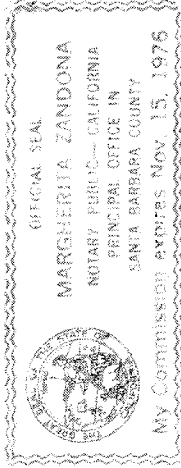 OFFICIAL SEAL
MARGHERITA ZANDONA
NOTARY PUBLIC — CALIFORNIA
PRINCIPAL OFFICE IN
SANTA BARBARA COUNTY
My Commission expires Nov. 15, 1976